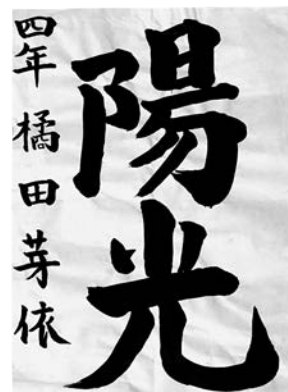 陽光
四年 橘田芽依